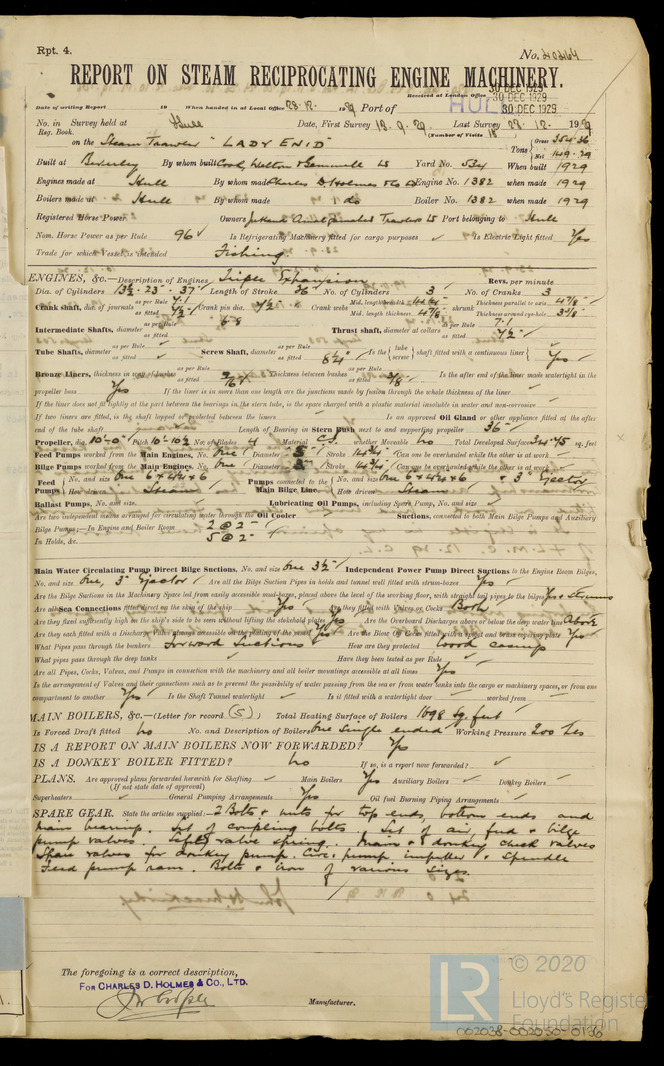 Rpt. 4.
No. 40464
REPORT ON STEAM RECIPROCATING ENGINE MACHINERY.
Received at London Office 30 DEC 1929
30 DEC 1929
Date of writing Report 19 When handed in at Local Office 28.12. 1929 Port of HULL 30 DEC 1929
No. in Survey held at Hull Date, First Survey 19.9.29 Last Survey 28.12. 1929
Reg. Book. (Number of Visits 18)
on the Steam Trawler "LADY ENID" Tons Gross 354.36 Net 149.29
Built at Beverley By whom built Cook, Welton & Gemmell Ld Yard No. 534 When built 1929
Engines made at Hull By whom made Charles D. Holmes & Co Ld Engine No. 1382 when made 1929
Boilers made at Hull By whom made do Boiler No. 1382 when made 1929
Registered Horse Power Owners Jutland Amalgamated Trawlers Ld Port belonging to Hull
Nom. Horse Power as per Rule 96 Is Refrigerating Machinery fitted for cargo purposes Is Electric Light fitted Yes
Trade for which Vessel is intended Fishing.
ENGINES, &c.—Description of Engines Triple Expansion Revs. per minute
Dia. of Cylinders 13½ - 23 - 37 Length of Stroke 26 No. of Cylinders 3 No. of Cranks 3
Crank shaft, dia. of journals as per Rule 7.1 as fitted 7½ Crank pin dia. 7½ Crank webs Mid. length breadth Mid. length thickness 4⅞ shrunk Thickness parallel to axis 4⅞ Thickness around eye-hole
Intermediate Shafts, diameter as per Rule 6.8 as fitted Thrust shaft, diameter at collars as per Rule 7.1 as fitted 7½
Tube Shafts, diameter as per Rule as fitted Screw Shaft, diameter as per Rule as fitted 8¼ Is the tube screw shaft fitted with a continuous liner Yes
Bronze Liners, thickness in way of bushes as per Rule as fitted Thickness between bushes as per Rule as fitted Is the after end of the liner made watertight in the
propeller boss Yes If the liner is in more than one length are the junctions made by fusion through the whole thickness of the liner
If the liner does not fit tightly at the part between the bearings in the stern tube, is the space charged with a plastic material insoluble in water and non-corrosive
If two liners are fitted, is the shaft lapped or protected between the liners Is an approved Oil Gland or other appliance fitted at the after
end of the tube shaft Length of Bearing in Stern Bush next to and supporting propeller 36"
Propeller, dia. 10'-0" Pitch 10'-10½ No. of Blades 4 Material C.I. whether Moveable No Total Developed Surface 34.45 sq. feet
Feed Pumps worked from the Main Engines, No. One Diameter Stroke 14¾ Can one be overhauled while the other is at work
Bilge Pumps worked from the Main Engines, No. One Diameter Stroke 14¾ Can one be overhauled while the other is at work
Feed Pumps No. and size One 6 x 4¼ x 6 How driven Steam Pumps connected to the Main Bilge Line. No. and size One 6 x 4¼ x 6 & 3" Ejector How driven Steam
Ballast Pumps, No. and size Lubricating Oil Pumps, including Spare Pump, No. and size
Are two independent means arranged for circulating water through the Oil Cooler Suctions, connected to both Main Bilge Pumps and Auxiliary
Bilge Pumps;—In Engine and Boiler Room 2 @ 2"
In Holds, &c. 5 @ 2"
Main Water Circulating Pump Direct Bilge Suctions, No. and size One 3½ Independent Power Pump Direct Suctions to the Engine Room Bilges,
No. and size One, 3" Ejector Are all the Bilge Suction Pipes in holds and tunnel well fitted with strum-boxes Yes
Are the Bilge Suctions in the Machinery Space led from easily accessible mud-boxes, placed above the level of the working floor, with straight tail pipes to the bilges Yes & Strums
Are all Sea Connections fitted direct on the skin of the ship Yes Are they fitted with Valves or Cocks Both
Are they fixed sufficiently high on the ship's side to be seen without lifting the stokehold plates Yes Are the Overboard Discharges above or below the deep water line Above
Are they each fitted with a Discharge Valve always accessible on the plating of the vessel Yes Are the Blow Off Cocks fitted with a spigot and brass covering plate Yes
What Pipes pass through the bunkers Forward Suctions How are they protected Wood casings
What pipes pass through the deep tanks Have they been tested as per Rule
Are all Pipes, Cocks, Valves, and Pumps in connection with the machinery and all boiler mountings accessible at all times Yes
Is the arrangement of Valves and their connections such as to prevent the possibility of water passing from the sea or from water tanks into the cargo or machinery spaces, or from one
compartment to another Yes Is the Shaft Tunnel watertight Is it fitted with a watertight door worked from
MAIN BOILERS, &c.—(Letter for record (S)) Total Heating Surface of Boilers 1698 Sq. feet
Is Forced Draft fitted No No. and Description of Boilers One Single ended Working Pressure 200 lbs
IS A REPORT ON MAIN BOILERS NOW FORWARDED? Yes
IS A DONKEY BOILER FITTED? No If so, is a report now forwarded?
PLANS. Are approved plans forwarded herewith for Shafting Main Boilers Yes Auxiliary Boilers Donkey Boilers
(If not state date of approval)
Superheaters General Pumping Arrangements Yes Oil fuel Burning Piping Arrangements
SPARE GEAR. State the articles supplied:— 2 Bolts & nuts for top ends, bottom ends and
main bearings. Set of coupling bolts. Set of air, feed & bilge
pump valves. Safety valve spring. Main & donkey check valves
Spare valves for donkey pump. Circ. pump impeller & Spindle
Feed pump ram. Bolts & iron of various sizes.
The foregoing is a correct description,
FOR CHARLES D. HOLMES & CO., LTD.
Manufacturer.
© 2020
LR
Lloyd's Register
Foundation
002038-002050-0136